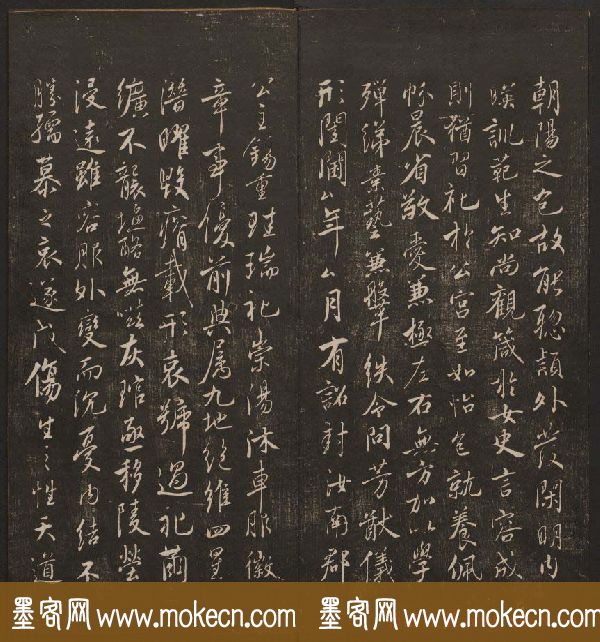 朝陽之色故能聡穎外發閑明内
暎訓範生知尚觀箴於女史言容成
則猶習礼於公宫至如怡色就養佩
帉晨省敬愛兼極左右無方加以學
殫綈素藝兼鞶紩令問芳猷儀
形閨閫厶年厶月有詔封汝南郡
公主錫重珪瑞礼崇湯沐車服徽
章事優前典属九地絶維四星
潛曜毁瘠載形哀號過礼繭
纊不襲塩酪無嗞灰琯亟移陵塋
浸遠雖容服外變而沉憂内結不
勝孺慕之哀遂成傷生之性天道
墨客网 www.mokecn.com 墨客网 www.mokecn.com